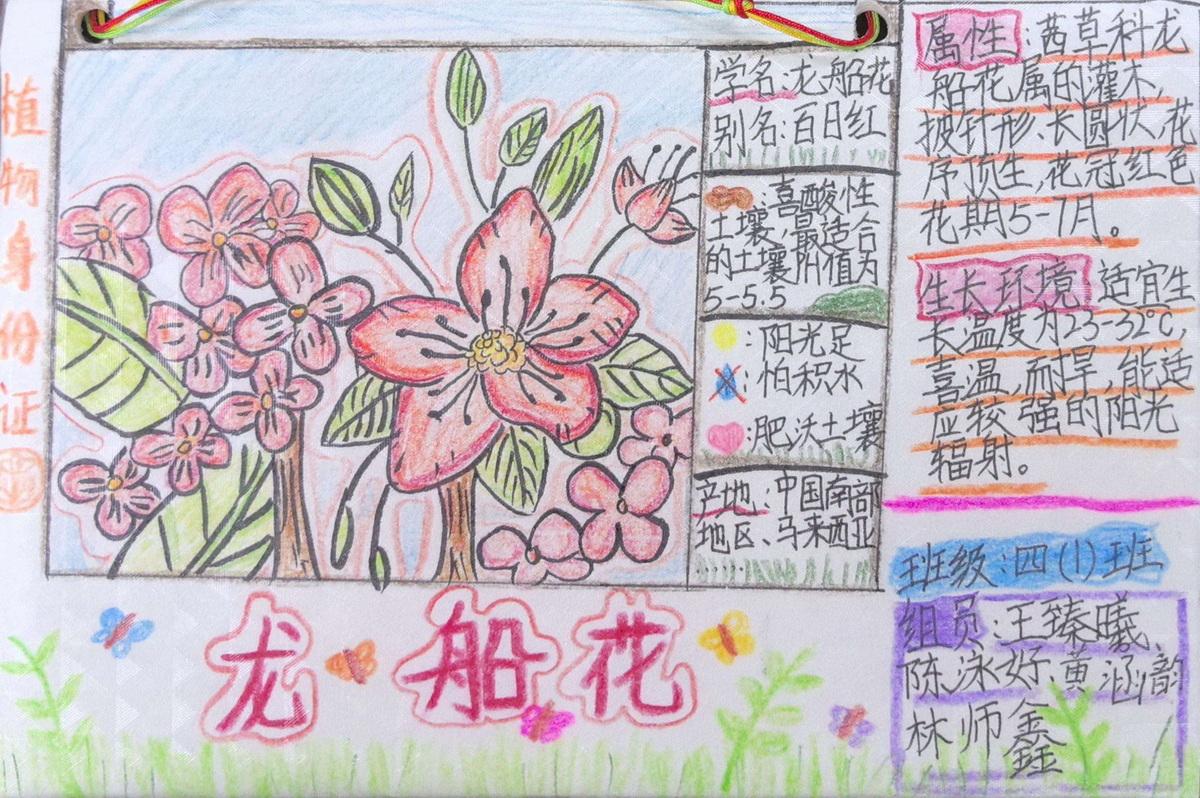 植物身份证
学名:龙船花
别名:百日红
:喜酸性
土壤,最适合
的土壤PH值为
5-5.5
:阳光足
:怕积水
:肥沃土壤
产地:中国南部
地区、马来西亚
......
属性:茜草科龙
船花属的灌木,
披针形、长圆状,花
序顶生,花冠红色
花期5-7月。
生长环境 适宜生
长温度为23-32℃,
喜温,耐旱,能适
应较强的阳光
辐射。
班级:四(1)班
组员:王臻曦、
陈泳好、黄涵韵
林师鑫
龙船花